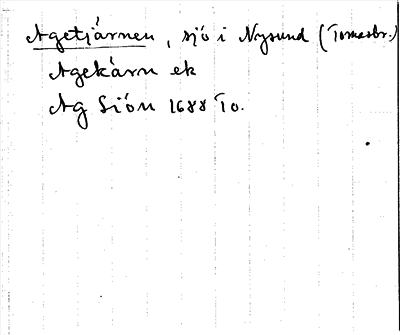 Agetjärnen, sjö i Nysund (Tomasbr.)
Agekärn ek
Ag Siön 1688 To.